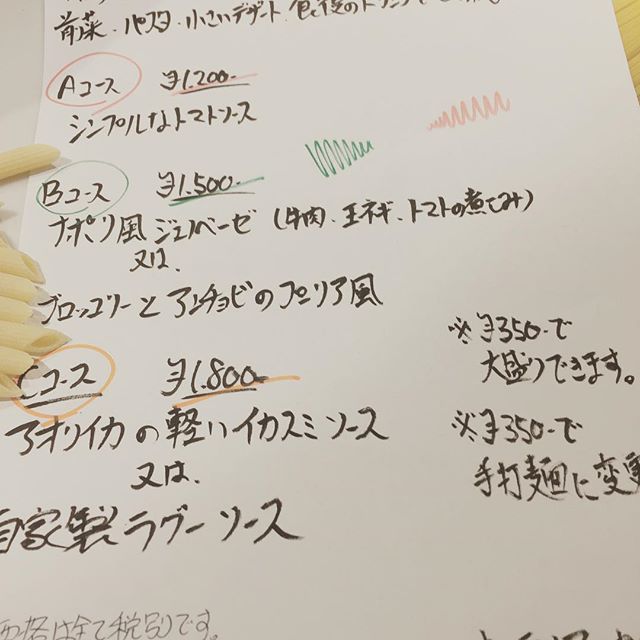 前菜・パスタ・小さいデザート・食後のドリンク
Aコース ¥1.200-
シンプルなトマトソース
Bコース ¥1.500-
ナポリ風ジェノベーゼ(牛肉、玉ネギ、トマトの煮こみ)
又は、
ブロッコリーとアンチョビのプーリア風
Cコース ¥1.800-
アオリイカの軽いイカスミソース
又は、
自家製ラグーソース
※¥350-で
大盛りできます。
※¥350-で
手打麺に変更
価格は全て税別です。